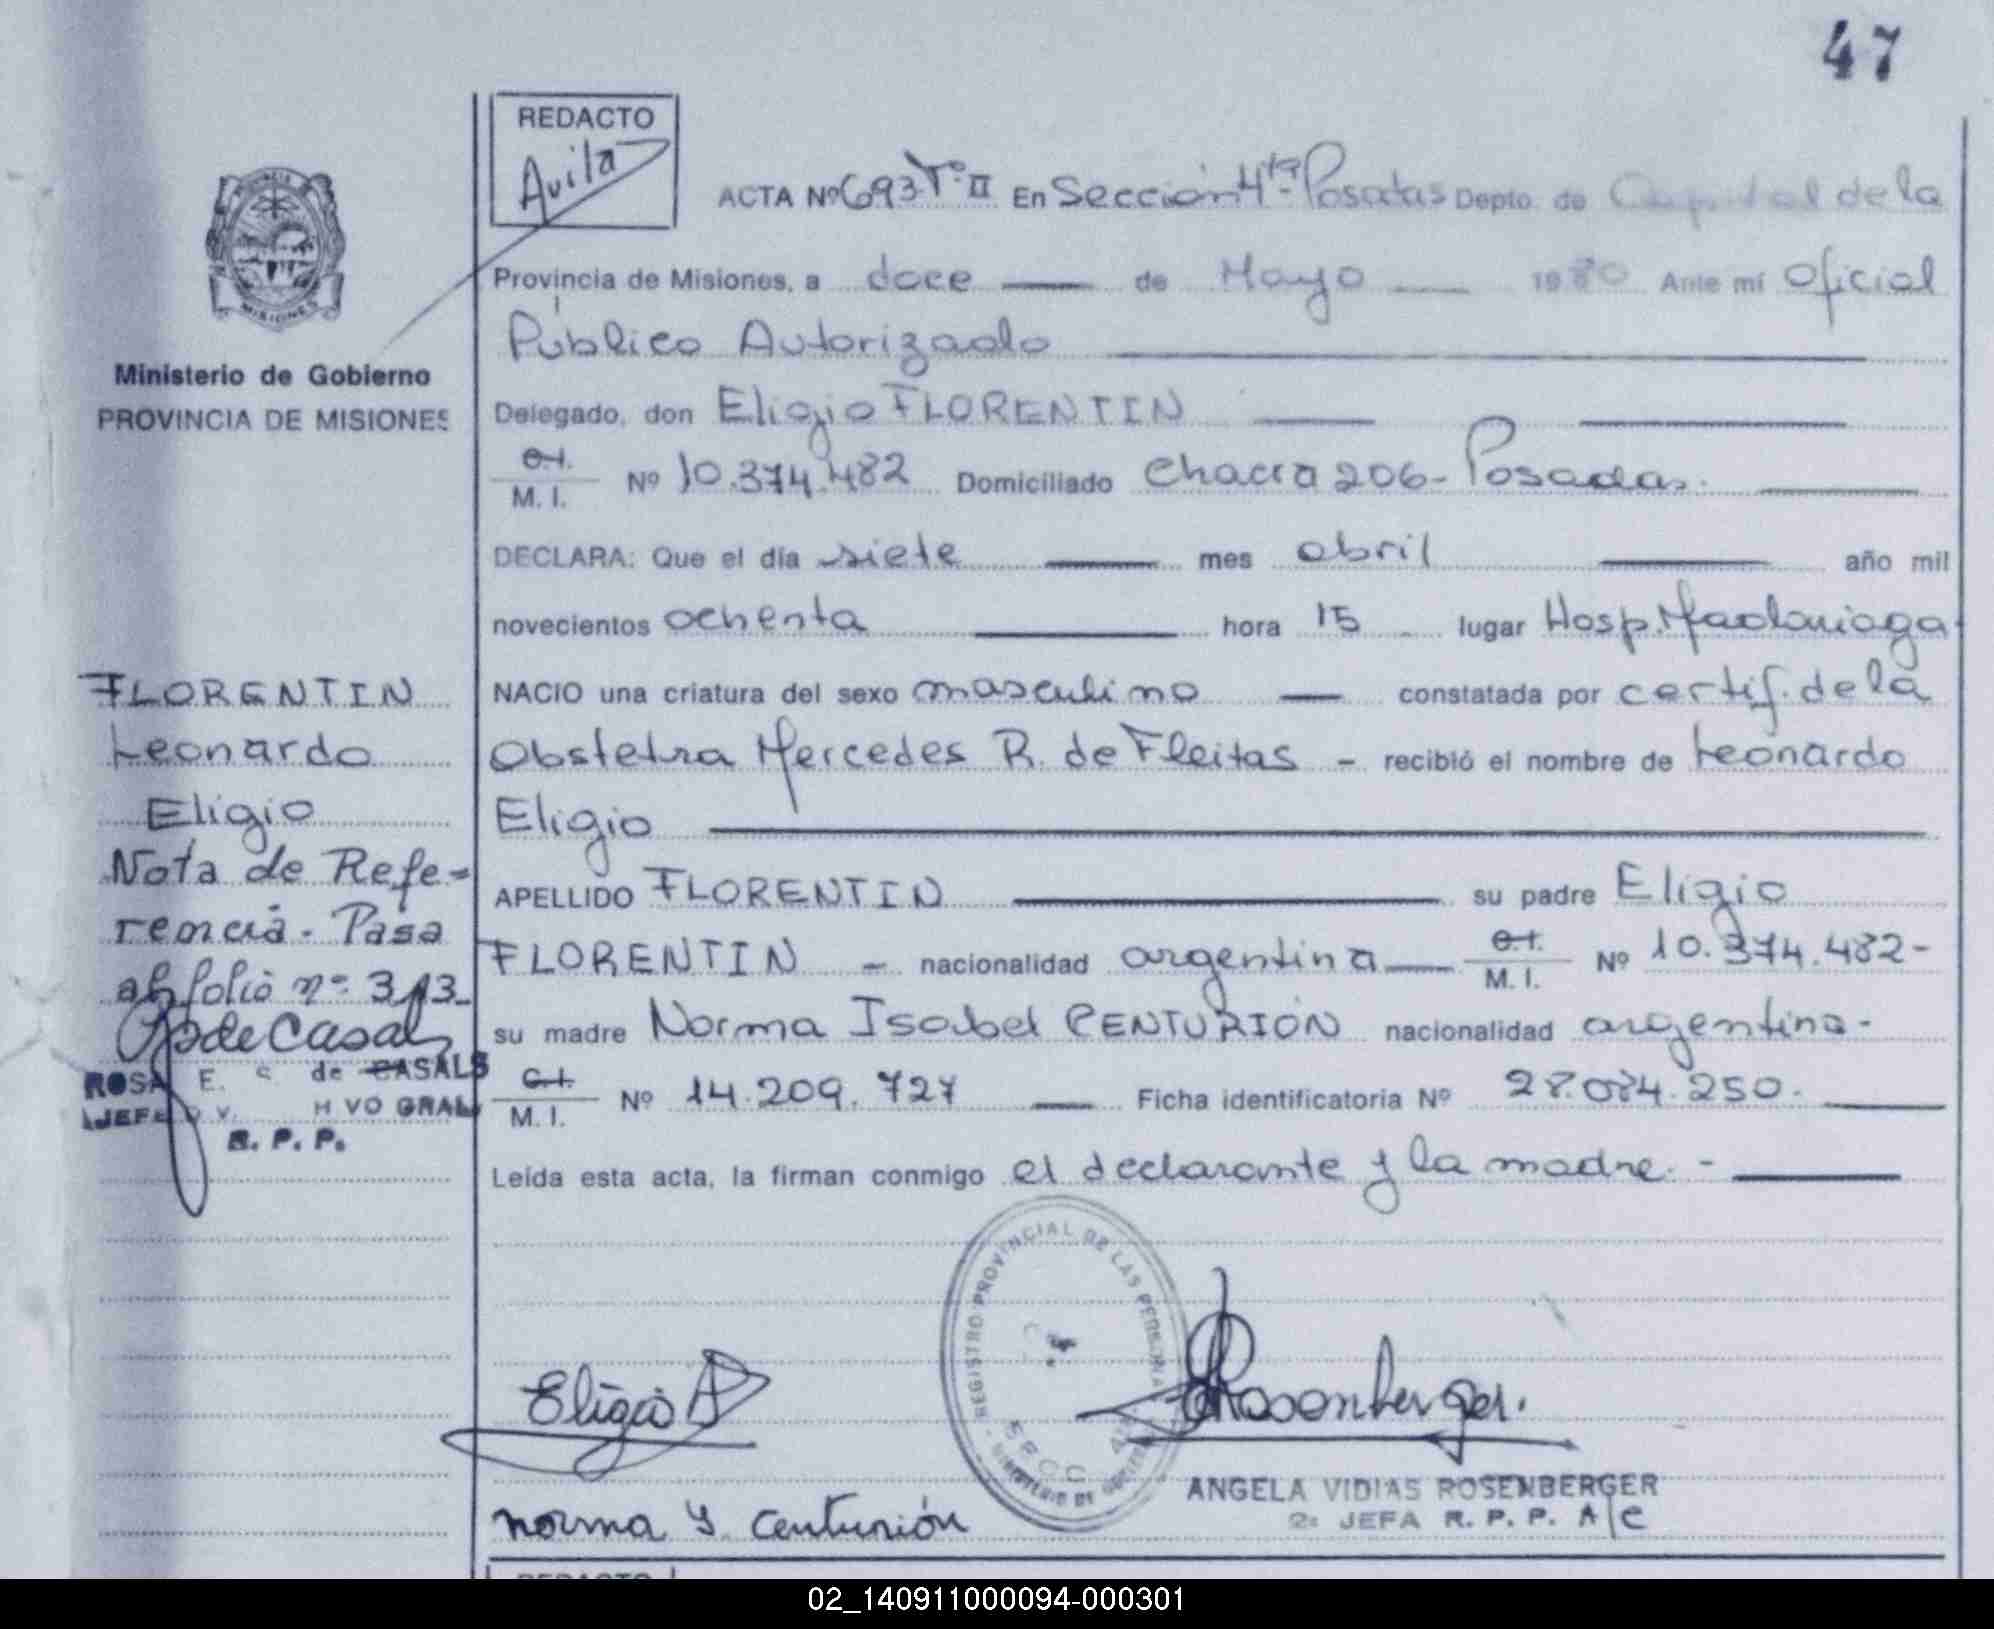 47
REDACTO
Avila
ACTA Nº 693 Tº II En Sección 4ta Posadas Depto. de Capital de la
PROVINCIA
MISIONES
Provincia de Misiones, a doce de Mayo 1980 Ante mí Oficial
Público Autorizado
Ministerio de Gobierno
PROVINCIA DE MISIONES
Delegado, don Eligio FLORENTIN
C.I.
M. I. Nº 10.374.482 Domiciliado Chacra 206 - Posadas.
DECLARA: Que el día siete mes abril año mil
novecientos ochenta hora 15 lugar Hosp. Madariaga
NACIO una criatura del sexo masculino constatada por certif. de la
Obstetra Mercedes R. de Fleitas - recibió el nombre de Leonardo
Eligio
APELLIDO FLORENTIN su padre Eligio
FLORENTIN - nacionalidad argentina C.I.
M. I. Nº 10.374.482-
su madre Norma Isabel CENTURIÓN nacionalidad argentina-
C.I.
M. I. Nº 14.209.727 Ficha identificatoria Nº 28.084.250.
Leída esta acta, la firman conmigo el declarante y la madre. -
FLORENTIN
Leonardo
Eligio
Nota de Refe-
rencia. Pasa
al folio nº 313
de Casals
ROSA E. de CASALS
JEFE
R. P. P.
REGISTRO PROVINCIAL DE LAS PERSONAS
MINISTERIO DE
SECC
Eligio
Rosenberger.
ANGELA VIDIAS ROSENBERGER
2ª JEFA R. P. P. A/C
Norma I. Centurión
REDACTO
02_140911000094-000301